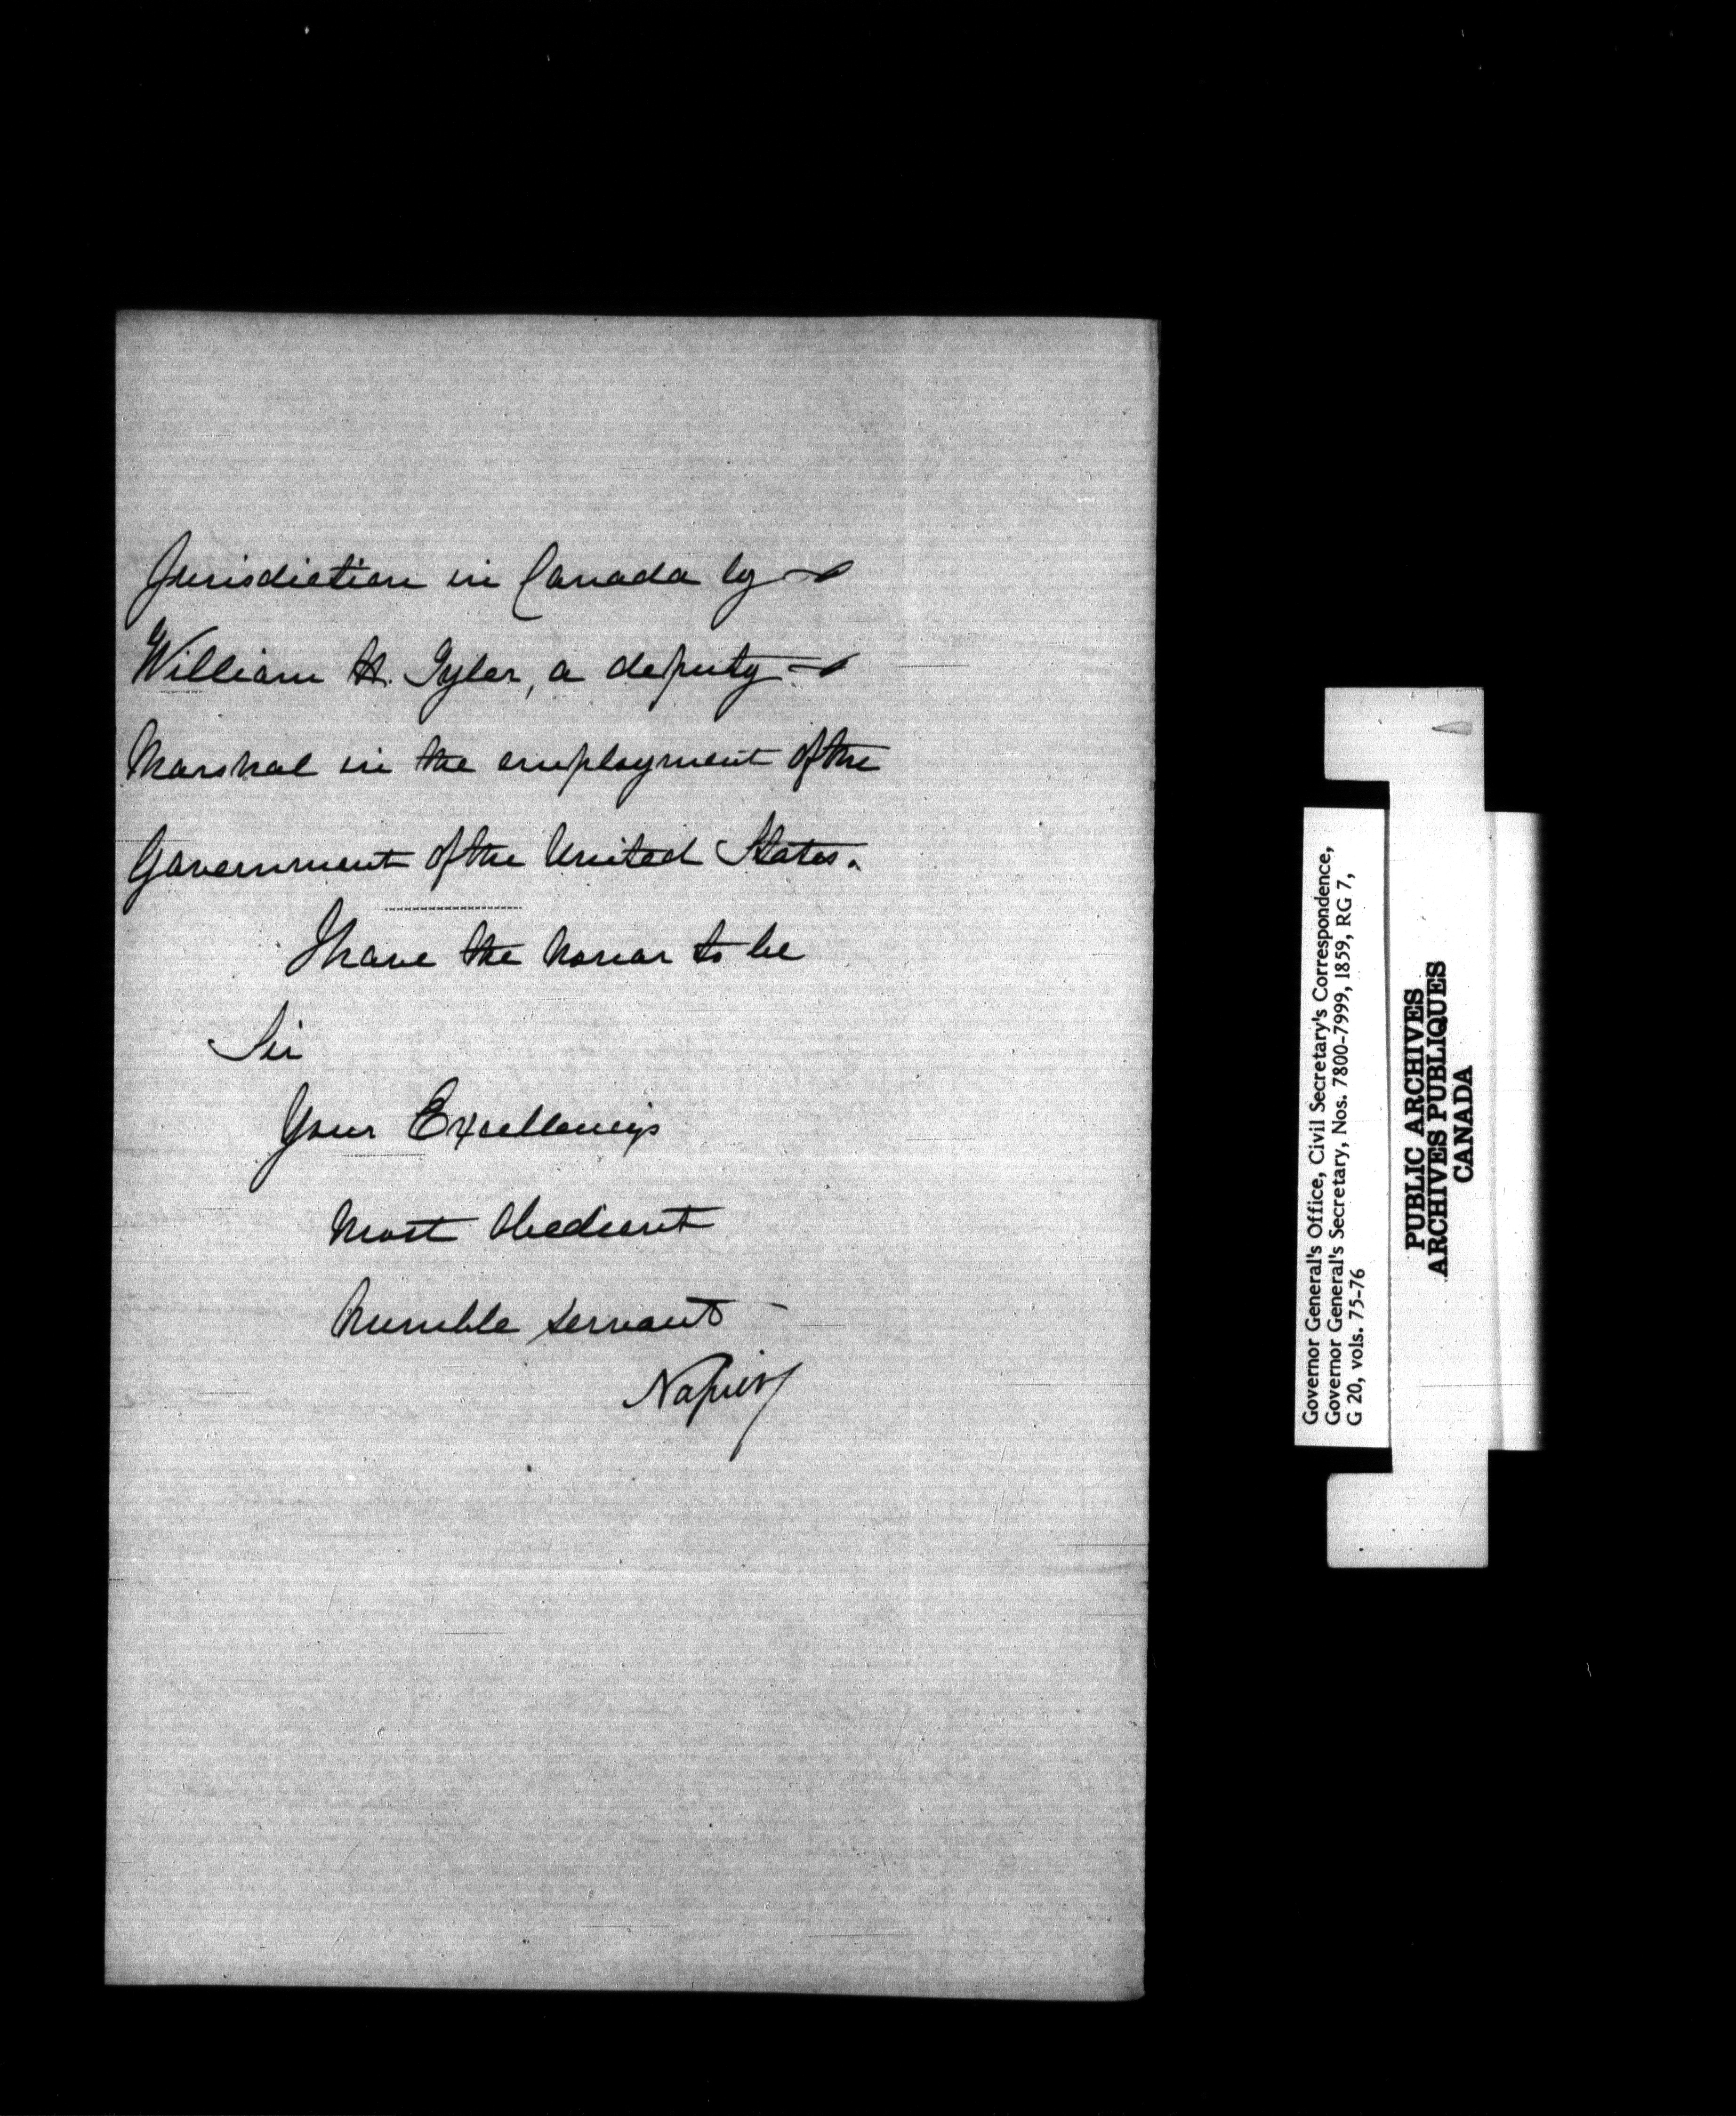 Jurisdiction in Canada by
William H. Tyler, a deputy
Marshal in the employment of the
Government of the United States.
I have the honor to be
Sir
Your Excellency's
Most Obedient
humble servant
Napier
Governor General's Office, Civil Secretary's Correspondence,
Governor General's Secretary, Nos. 7800-7999, 1859, RG 7,
G 20, vols. 75-76
PUBLIC ARCHIVES
ARCHIVES PUBLIQUES
CANADA